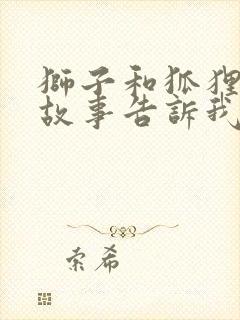 獅子和狐狸
故事告訴我
索希